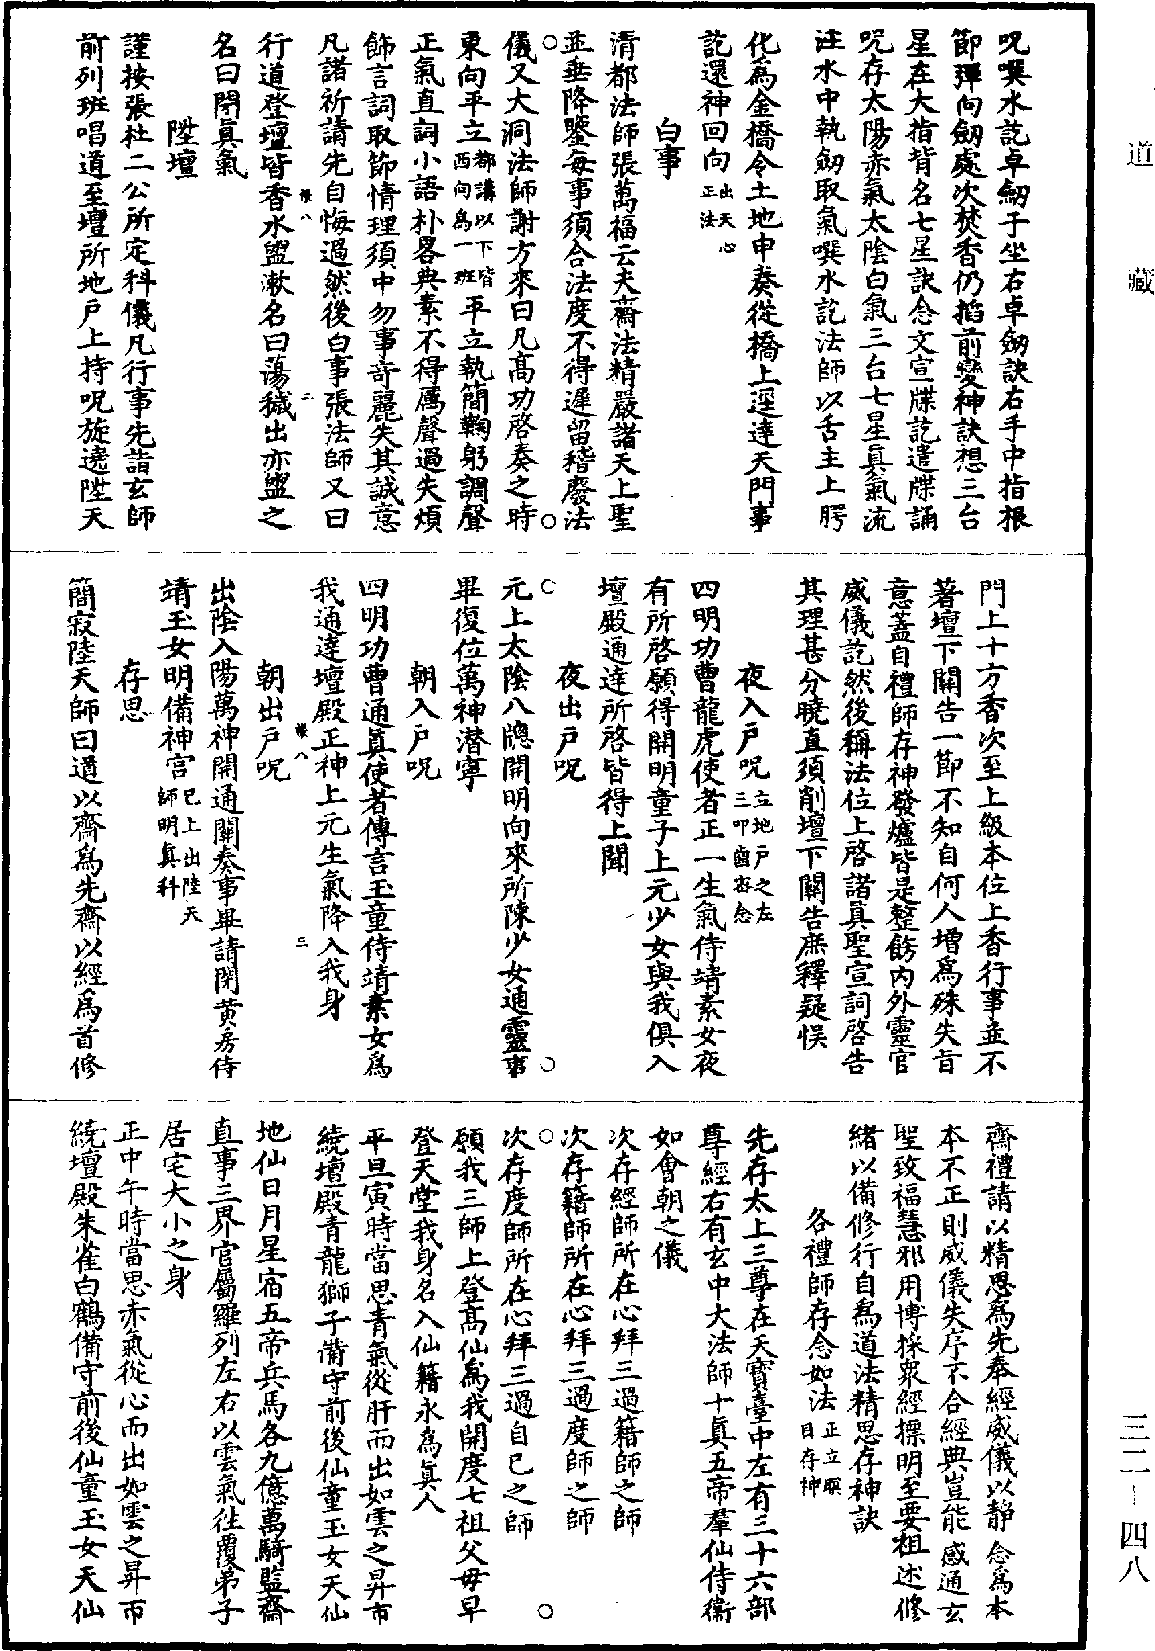 道藏
咒噀水訖卓劒于坐右卓劒訣右手中指根
節彈向劒處次焚香仍掐前變神訣想三台
星在大指背名七星訣念文宣牒訖遣牒誦
咒存太陽赤氣太陰白氣三台七星眞氣流
注水中執劒取氣噀水訖法師以舌主上腭
化爲金橋令土地申奏從橋上逕達天門事
訖還神回向出天心正法
白事
清都法師張萬福云夫齋法精嚴諸天上聖
並垂降鑒每事須合法度不得遲留稽廢法
儀又大洞法師謝方來曰凡高功啓奏之時
東向平立都講以下皆西向爲一班平立執簡鞠躬調聲
正氣直詞小語朴畧典素不得厲聲過失煩
飾言詞取節情理須中勿事奇麗失其誠意
凡諸祈請先自悔過然後白事張法師又曰
行道登壇皆香水盥漱名曰蕩穢出亦盥之
名曰閉眞氣
陞壇
謹按張杜二公所定科儀凡行事先詣玄師
前列班唱道至壇所地戶上持呪旋遶陞天
門上十方香次至上級本位上香行事並不
著壇下關告一節不知自何人增爲殊失旨
意蓋自禮師存神發爐皆是整飭內外靈官
威儀訖然後稱法位上啓諸眞聖宣詞啓告
其理甚分曉直須削壇下關告庶釋疑悮
夜入戶呪立地戶之左三叩齒密念
四明功曹龍虎使者正一生氣侍靖素女夜
有所啓願得開明童子上元少女與我俱入
壇殿通達所啓皆得上聞
夜出戶呪
元上太陰八牕開明向來所陳少女通靈事
畢復位萬神潛寧
朝入戶呪
四明功曹通眞使者傳言玉童侍靖素女爲
我通達壇殿正神上元生氣降入我身
朝出戶呪
出陰入陽萬神開通關奏事畢請閉黃房侍
靖玉女明備神宮已上出陸天師明眞科
存思
簡寂陸天師曰道以齋爲先齋以經爲首修
齋禮請以精思爲先奉經威儀以靜念爲本
本不正則威儀失序不合經典豈能感通玄
聖致福慧邪用博採衆經摽明至要祖述修
緒以備修行自爲道法精思存神訣
各禮師存念如法正立瞑目存神
先存太上三尊在天寶臺中左有三十六部
尊經右有玄中大法師十眞五帝羣仙侍衞
如會朝之儀
次存經師所在心拜三過籍師之師
次存籍師所在心拜三過度師之師
次存度師所在心拜三過自己之師
願我三師上登高仙爲我開度七祖父母早
登天堂我身名入仙籍永爲眞人
平旦寅時當思青氣從肝而出如雲之昇市
繞壇殿青龍獅子備守前後仙童玉女天仙
地仙日月星宿五帝兵馬各九億萬騎監齋
直事三界官屬羅列左右以雲氣往覆弟子
居宅大小之身
正中午時當思赤氣從心而出如雲之昇帀
繞壇殿朱雀白鶴備守前後仙童玉女天仙
三二-四八